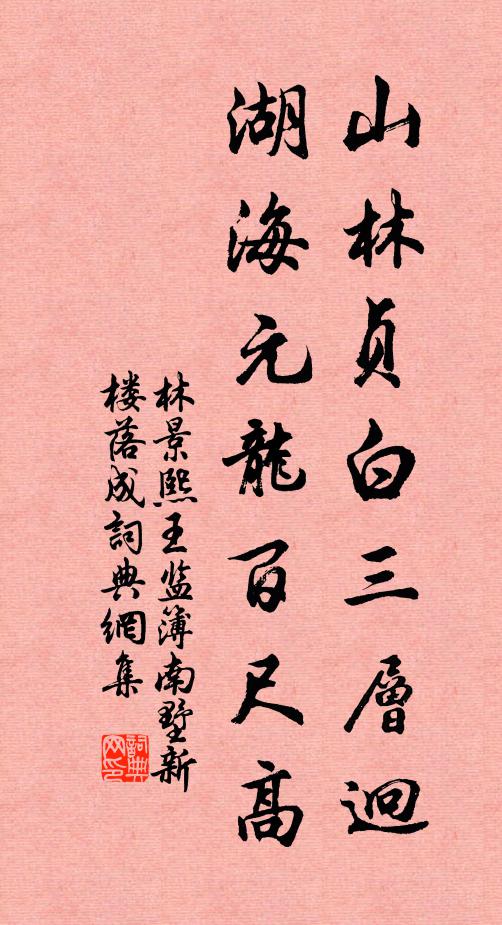 山林贞白三層迥
湖海元龍百尺高
林景熙王监簿南墅新
楼落成詞典網集
詞典
网印